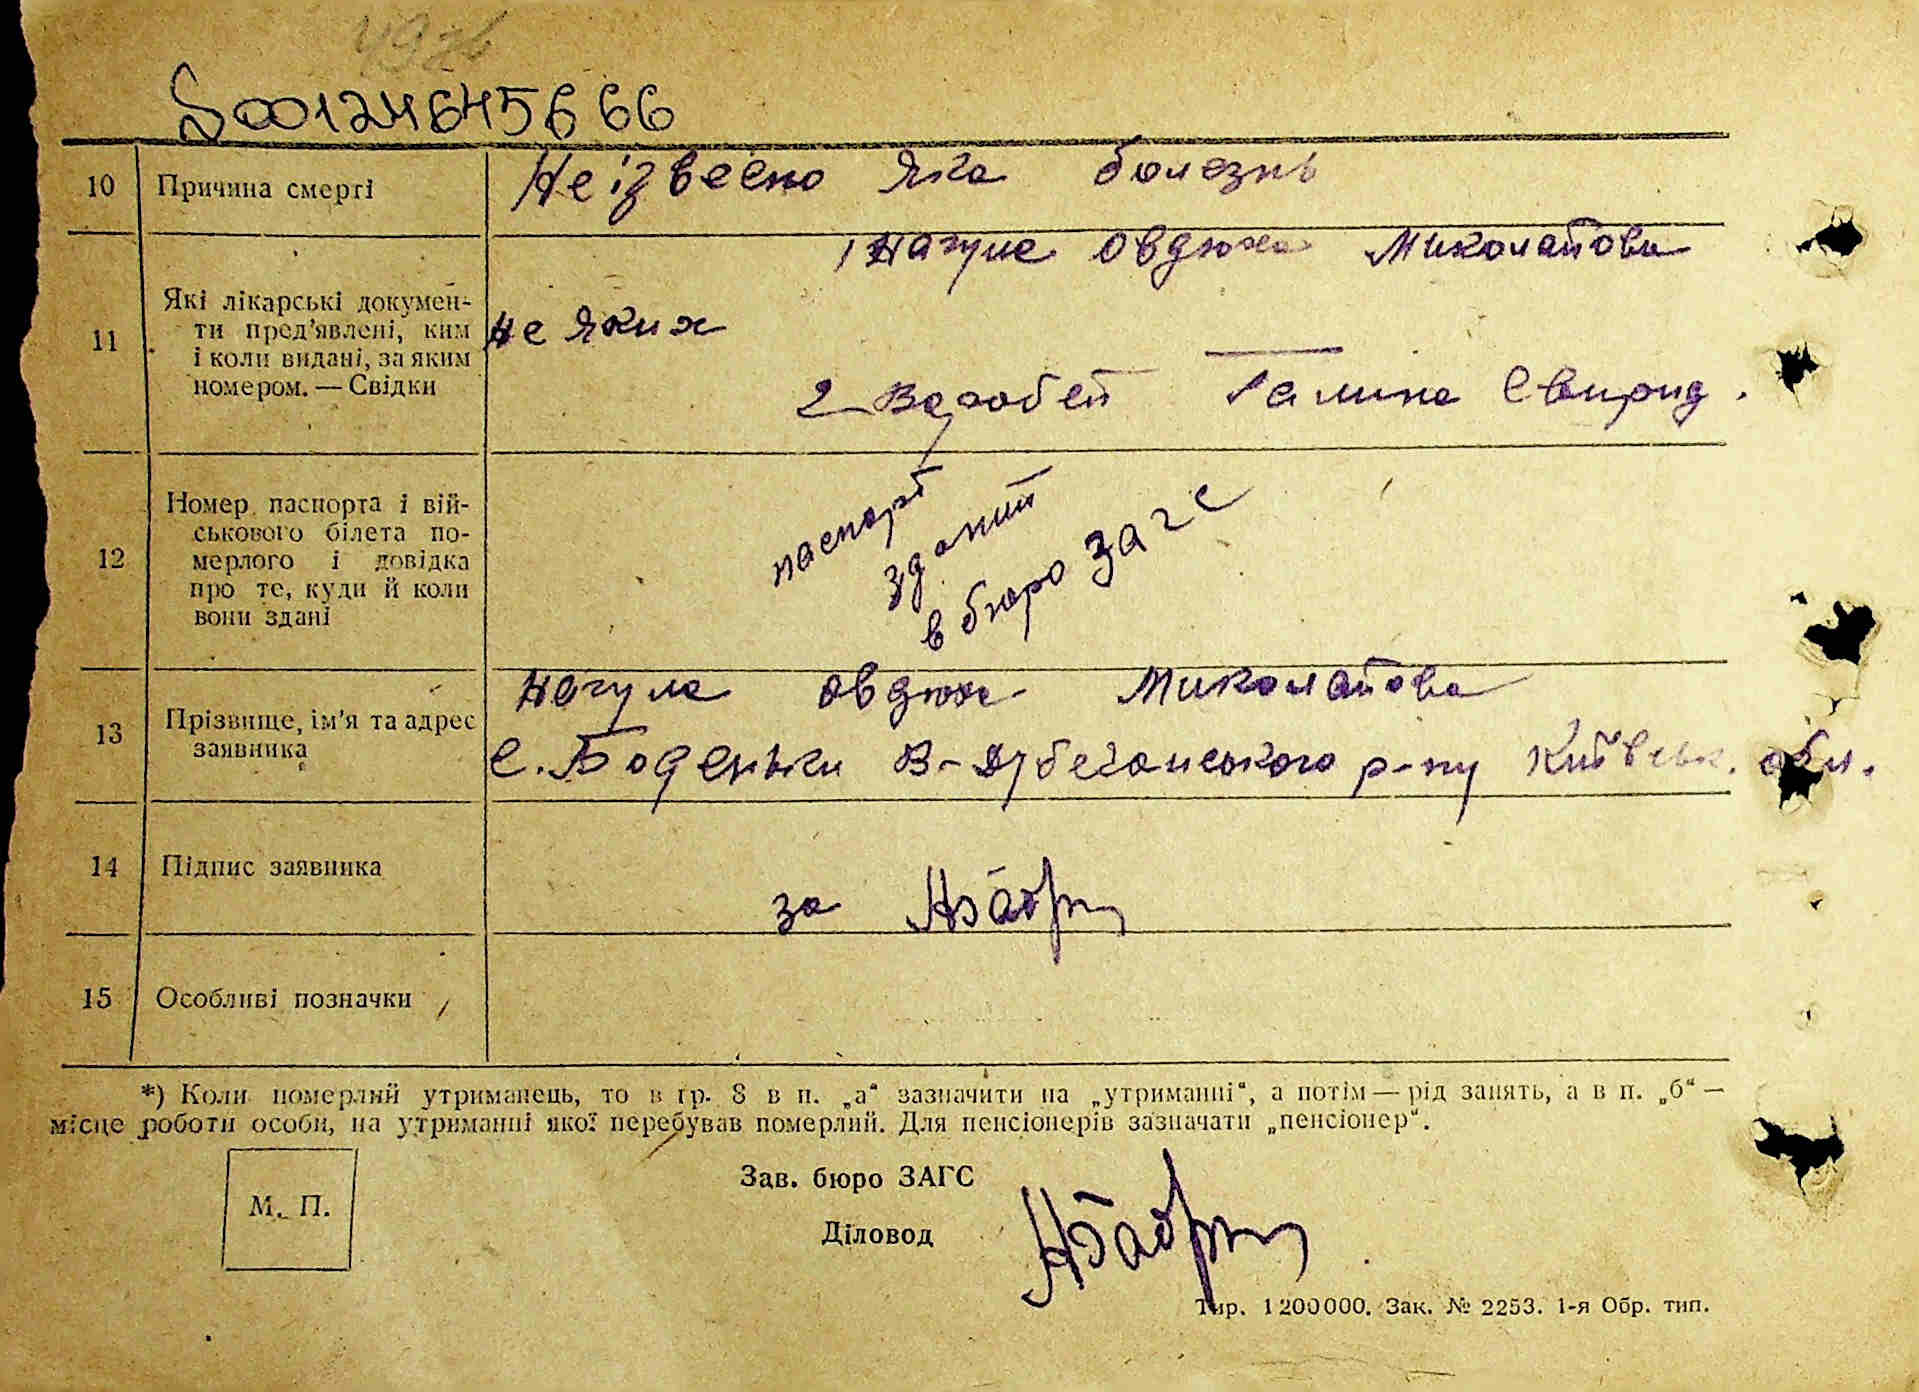 S001246456 66
10 Причина смерті Не ізвесно яка болезнь
1 Нагула Овдюха Миколайовн
11 Які лікарські докумен-
ти пред’явлені, ким
і коли видані, за яким
номером. — Свідки
не яких
2 Воробей Галина Свирид.
12 Номер паспорта і вій-
ськового білета по-
мерлого і довідка
про те, куди й коли
вони здані
паспорт
зданий
в бюро загс
13 Прізвище, ім’я та адрес
заявника
Нагула Овдюх Миколайовна
с. Боденьки В-Дубечанського р-ну Київськ. обл.
14 Підпис заявника за
15 Особливі позначки
*) Коли померлий утриманець, то в гр. 8 в п. „а“ зазначити на „утриманні“, а потім — рід занять, а в п. „б“ —
місце роботи особи, на утриманні якої перебував померлий. Для пенсіонерів зазначати „пенсіонер“.
М. П.
Зав. бюро ЗАГС
Діловод
Тир. 1200000. Зак. № 2253. 1-я Обр. тип.